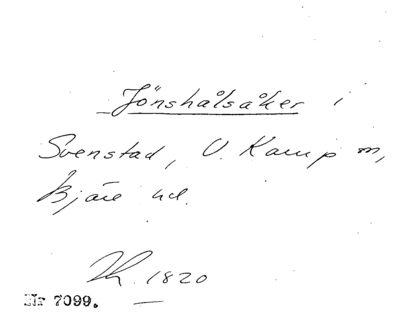 Jönshålsåker i
Svenstad, V. Karup sn,
Bjäre hd.
Lh. 1820
Nr 7099.